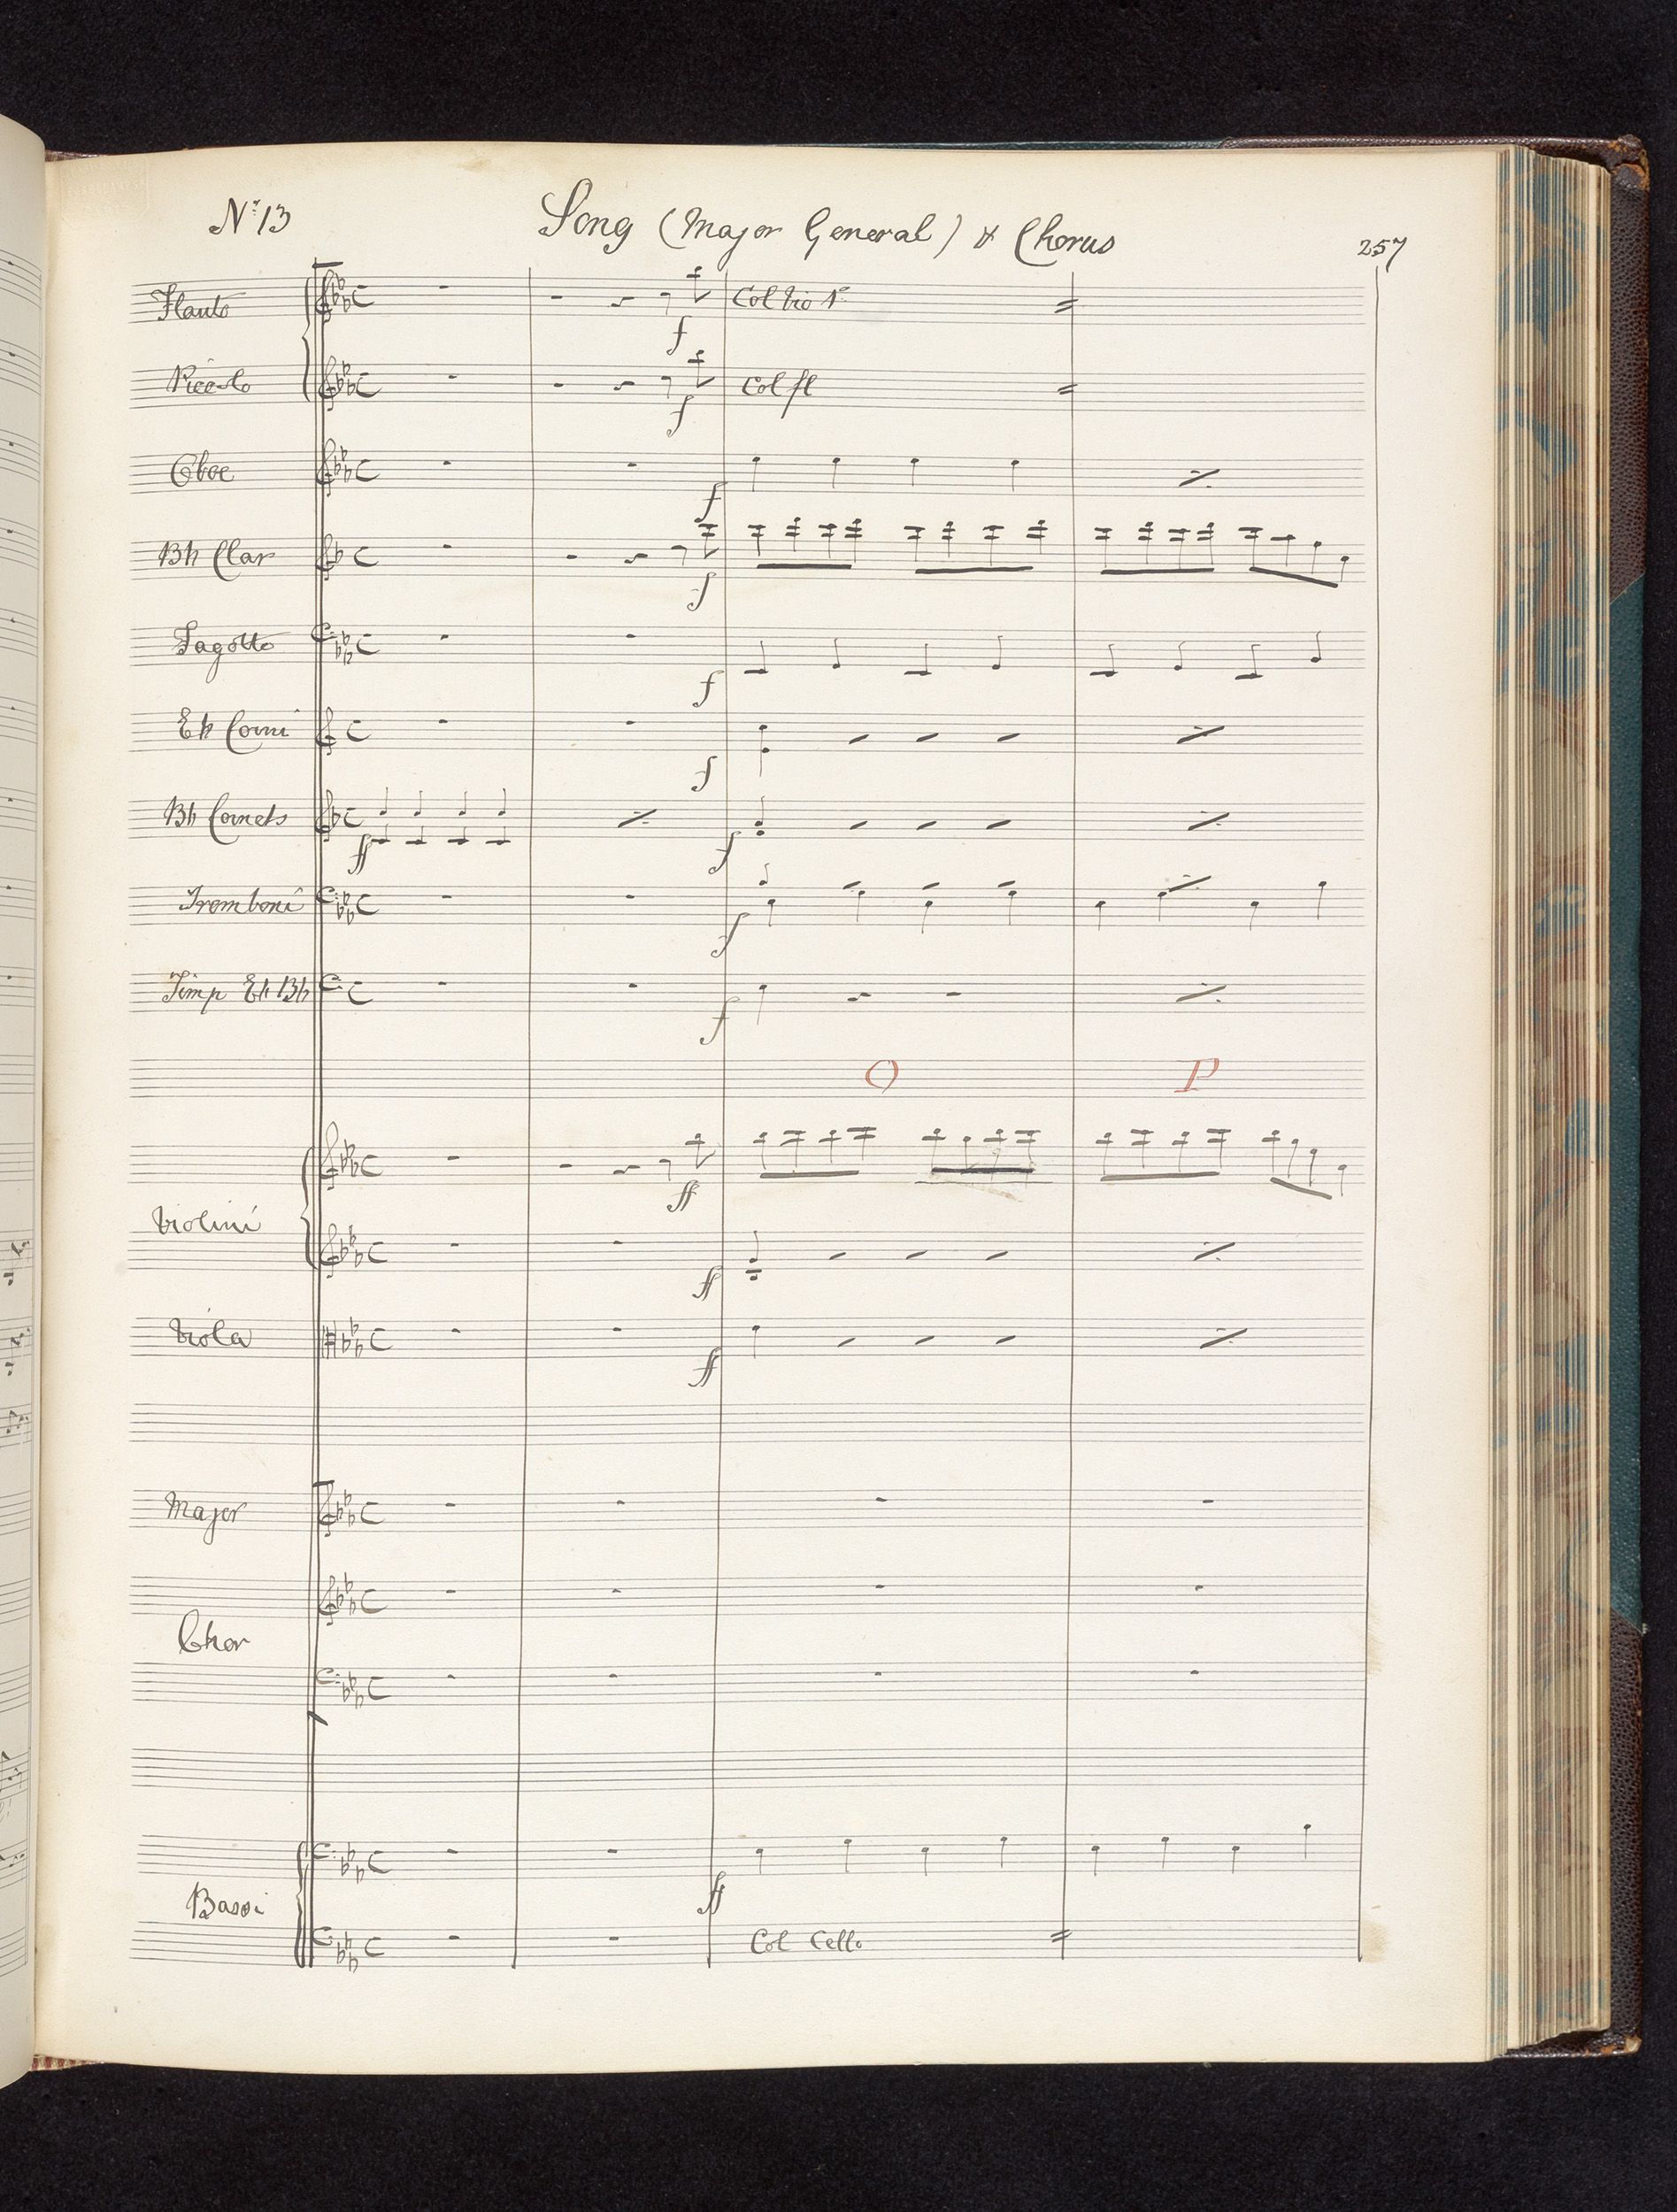 Nr 13
Song (Major General) & Chorus
257
Flauto
f
Col Vio 1o
Piccolo
f
Col fl
Oboe
f
Bb Clar
f
Fagotto
f
Eb Corni
f
Bb Cornets
ff
f
Tromboni
f
Timp Eb Bb
f
O P
Violini
ff
ff
Viola
ff
Major
Chor
Bassi
ff
Col Cello